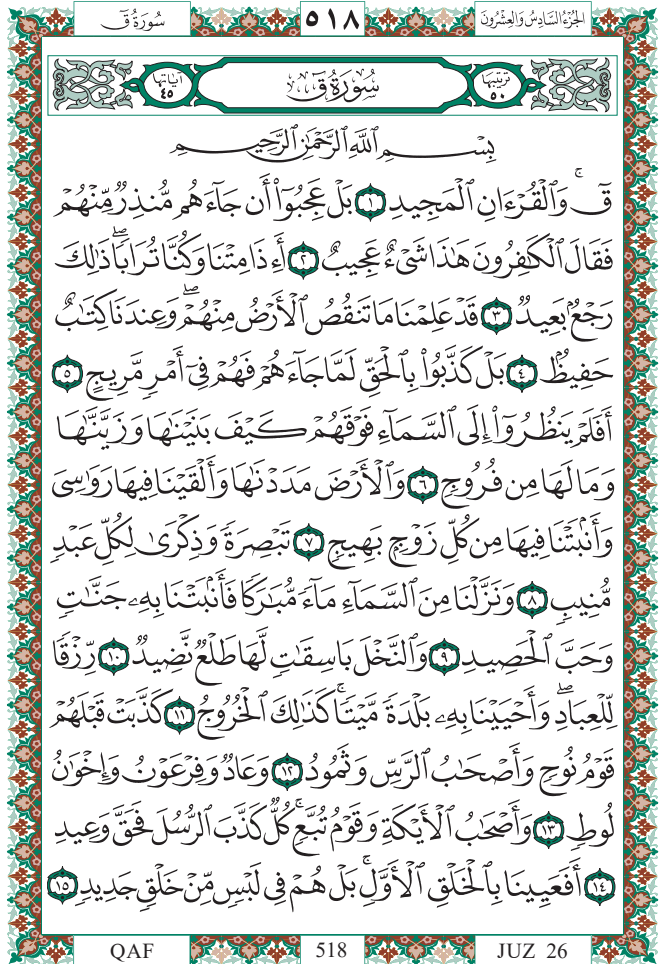 سُورَةُ قٓ ٥١٨ الجُزْءُ السَّادِسُ وَالعِشْرُونَ
ترتيبها ٥٠ سُورَةُ قٓ آياتها ٤٥
بِسْمِ ٱللَّهِ ٱلرَّحْمَٰنِ ٱلرَّحِيمِ
قٓۚ وَٱلْقُرْءَانِ ٱلْمَجِيدِ ١ بَلْ عَجِبُوٓا۟ أَن جَآءَهُم مُّنذِرٌ مِّنْهُمْ
فَقَالَ ٱلْكَٰفِرُونَ هَٰذَا شَىْءٌ عَجِيبٌ ٢ أَءِذَا مِتْنَا وَكُنَّا تُرَابًاۖ ذَٰلِكَ
رَجْعٌۢ بَعِيدٌ ٣ قَدْ عَلِمْنَا مَا تَنقُصُ ٱلْأَرْضُ مِنْهُمْۖ وَعِندَنَا كِتَٰبٌ
حَفِيظٌۢ ٤ بَلْ كَذَّبُوا۟ بِٱلْحَقِّ لَمَّا جَآءَهُمْ فَهُمْ فِىٓ أَمْرٍ مَّرِيجٍ ٥
أَفَلَمْ يَنظُرُوٓا۟ إِلَى ٱلسَّمَآءِ فَوْقَهُمْ كَيْفَ بَنَيْنَٰهَا وَزَيَّنَّٰهَا
وَمَا لَهَا مِن فُرُوجٍ ٦ وَٱلْأَرْضَ مَدَدْنَٰهَا وَأَلْقَيْنَا فِيهَا رَوَٰسِىَ
وَأَنۢبَتْنَا فِيهَا مِن كُلِّ زَوْجٍۭ بَهِيجٍ ٧ تَبْصِرَةً وَذِكْرَىٰ لِكُلِّ عَبْدٍ
مُّنِيبٍ ٨ وَنَزَّلْنَا مِنَ ٱلسَّمَآءِ مَآءً مُّبَٰرَكًا فَأَنۢبَتْنَا بِهِۦ جَنَّٰتٍ
وَحَبَّ ٱلْحَصِيدِ ٩ وَٱلنَّخْلَ بَاسِقَٰتٍ لَّهَا طَلْعٌ نَّضِيدٌ ١٠ رِّزْقًا
لِّلْعِبَادِۖ وَأَحْيَيْنَا بِهِۦ بَلْدَةً مَّيْتًاۚ كَذَٰلِكَ ٱلْخُرُوجُ ١١ كَذَّبَتْ قَبْلَهُمْ
قَوْمُ نُوحٍ وَأَصْحَٰبُ ٱلرَّسِّ وَثَمُودُ ١٢ وَعَادٌ وَفِرْعَوْنُ وَإِخْوَٰنُ
لُوطٍ ١٣ وَأَصْحَٰبُ ٱلْأَيْكَةِ وَقَوْمُ تُبَّعٍۚ كُلٌّ كَذَّبَ ٱلرُّسُلَ فَحَقَّ وَعِيدِ
١٤ أَفَعَيِينَا بِٱلْخَلْقِ ٱلْأَوَّلِۚ بَلْ هُمْ فِى لَبْسٍ مِّنْ خَلْقٍ جَدِيدٍ ١٥
QAF 518 JUZ 26